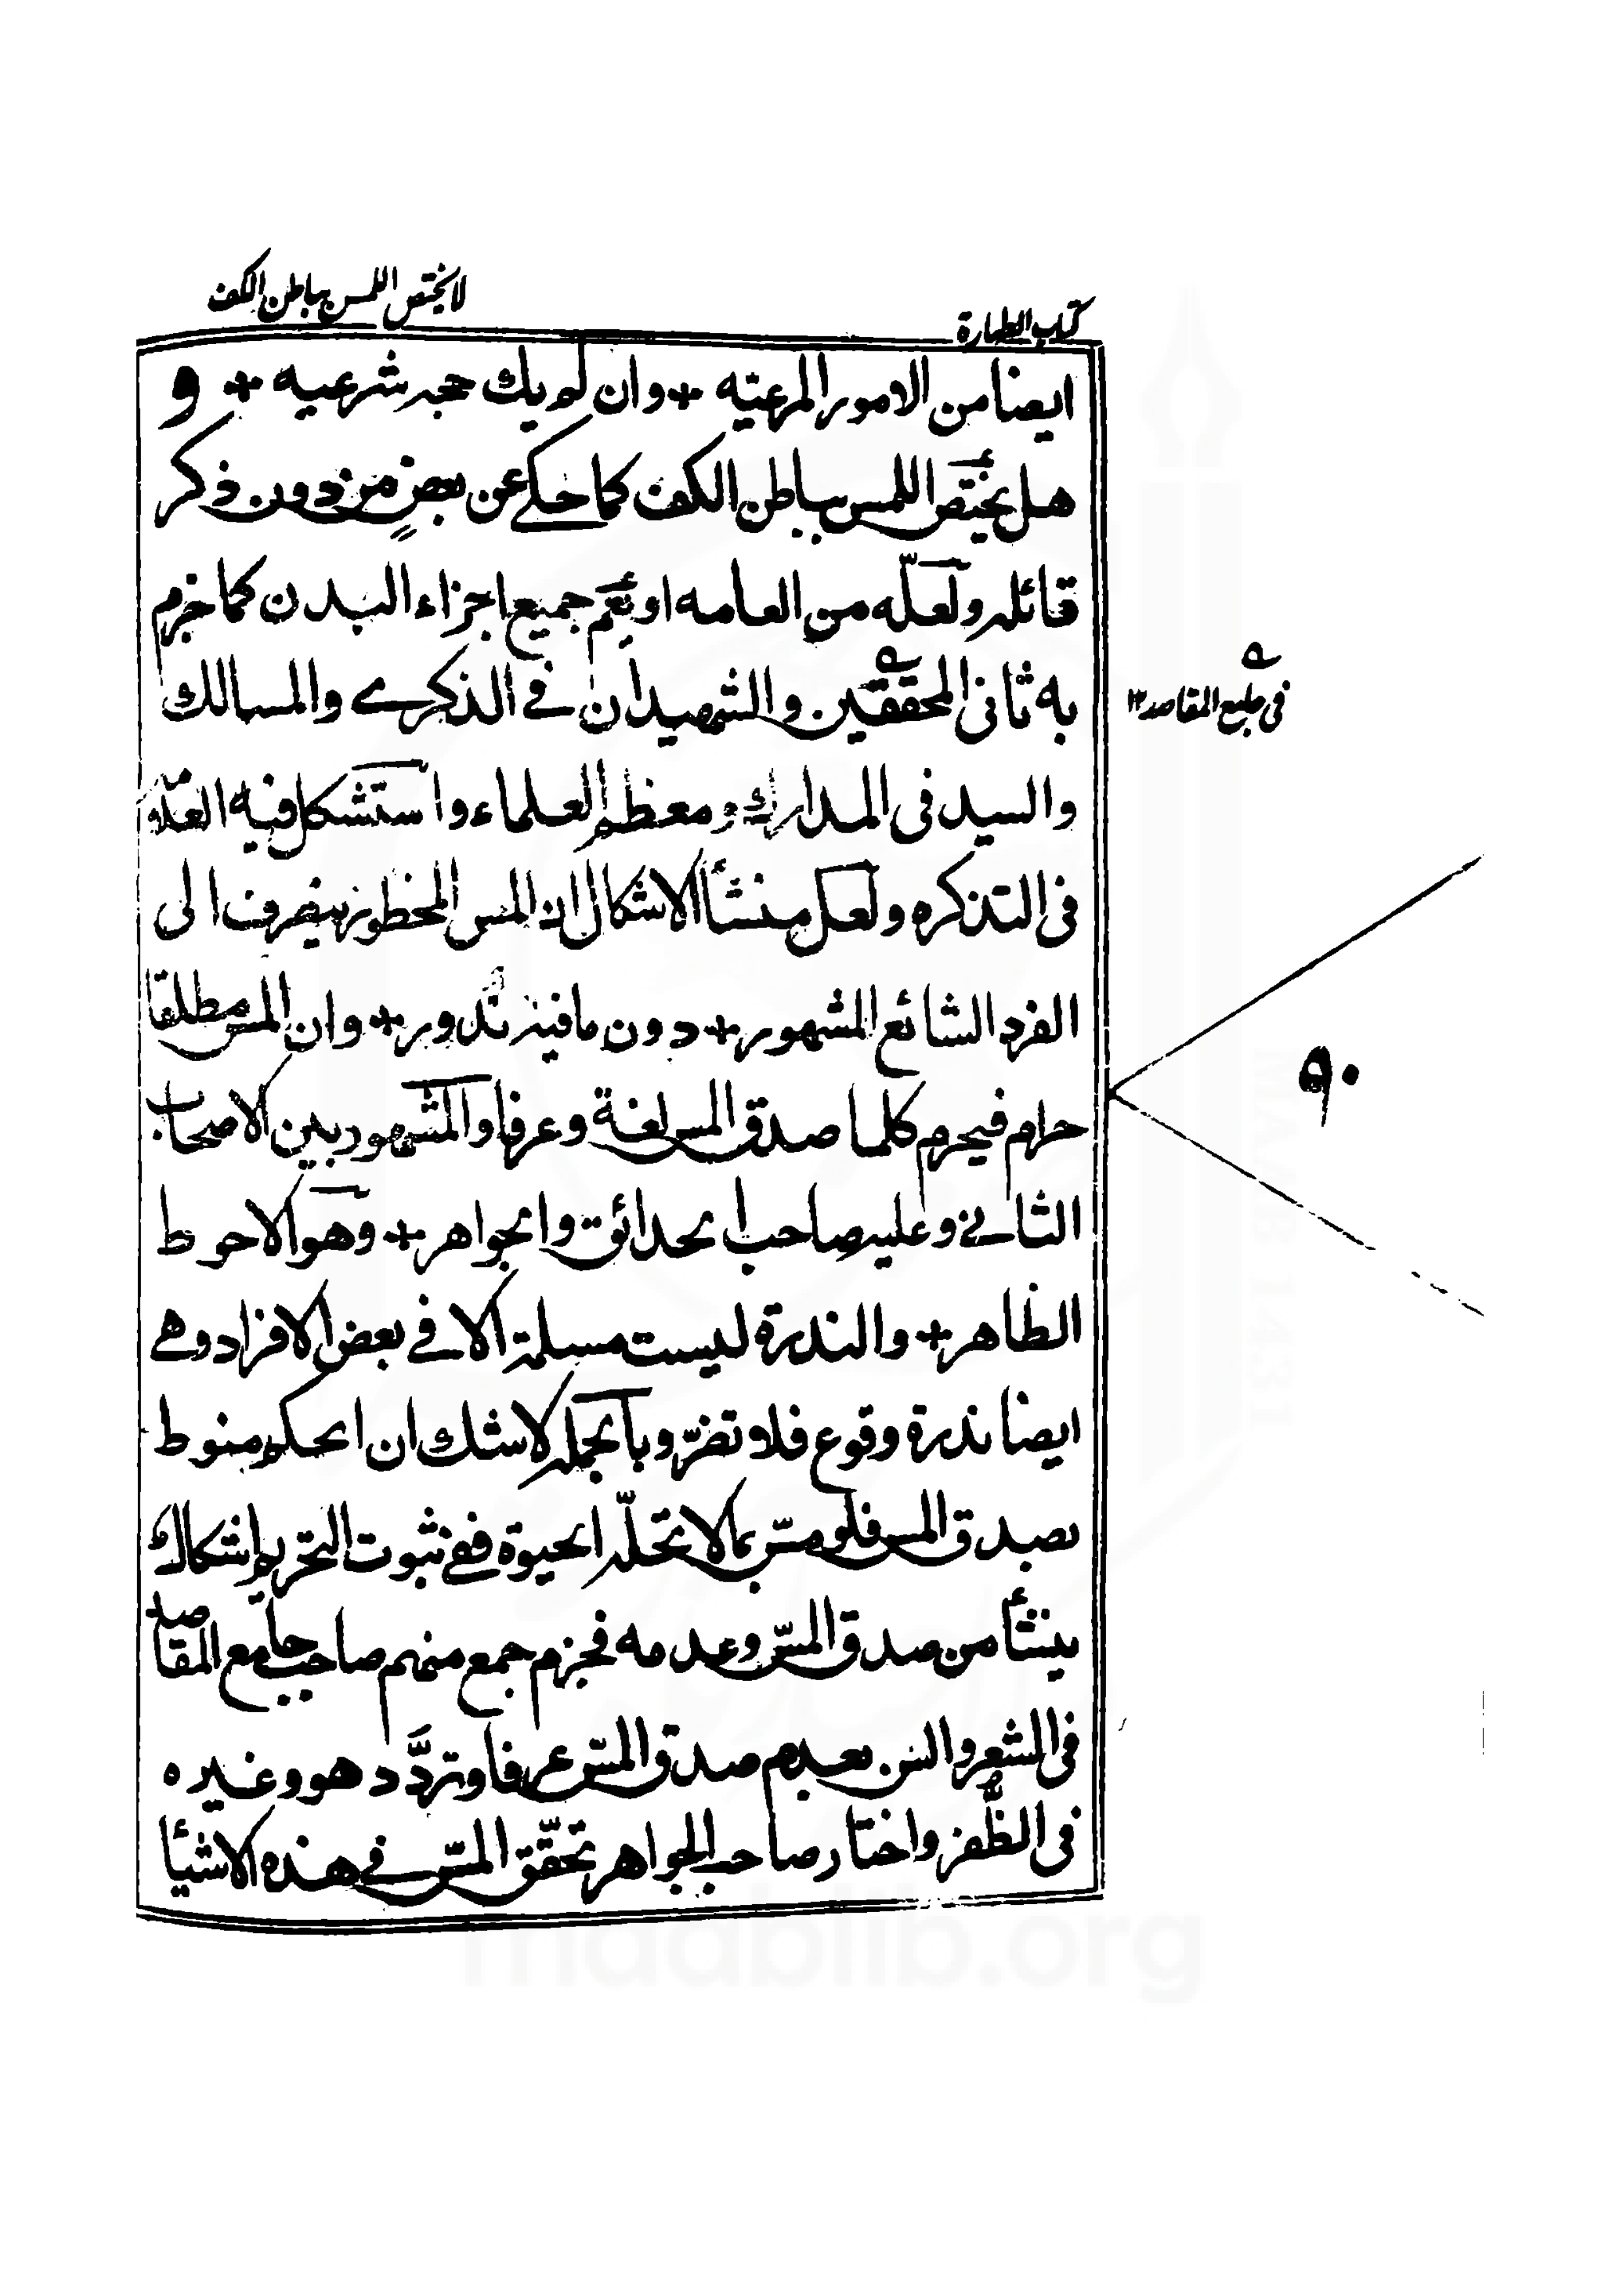 لا يختص اللمس بباطن الكف
كتاب الطهارة
ايضا من الامور المرعيه + وان لم يك حجه شرعيه + و
هل يختص اللمس بباطن الكف كما حكى عن بعض من دون ذكر
قائله ولعله من العامه او يعم جميع اجزاء البدن كما جزم
به ثانى المحققين والشهيدان في الذكرى والمسالك
والسيد فى المدارك ومعظم العلماء واستشكل فيه العلامه
فى التذكره ولعل منشأ الاشكال ان المس المحظور ينصرف الى
الفرد الشائع المشهور + دون ما فيه ندور + وان المس مطلقا
حرام فيحرم كلما صدق المس لغة وعرفا والمشهور بين الاصحاب
الثانى وعليه صاحب الحدائق والجواهر + وهو الاحوط
الظاهر + والندرة ليست مسلمة الا في بعض الافراد وهى
ايضا ندرة وقوع فلا تضرّ وبالجمله لا شك ان الحكم منوط
بصدق المس فلو مسّ بما لا تحلّه الحيوة ففى ثبوت التحريم اشكال
ينشأ من صدق المسّ وعدمه فجزم جمع منهم صاحب جامع المقاصد
فى الشعر والسن بعدم صدق المسّ عرفا وتردَّد هو وغيره
فى الظُّفر واختار صاحب الجواهر تحقّق المسّ في هذه الاشيأ
فى جامع المقاصد ١٢
٩٠
maablib.org